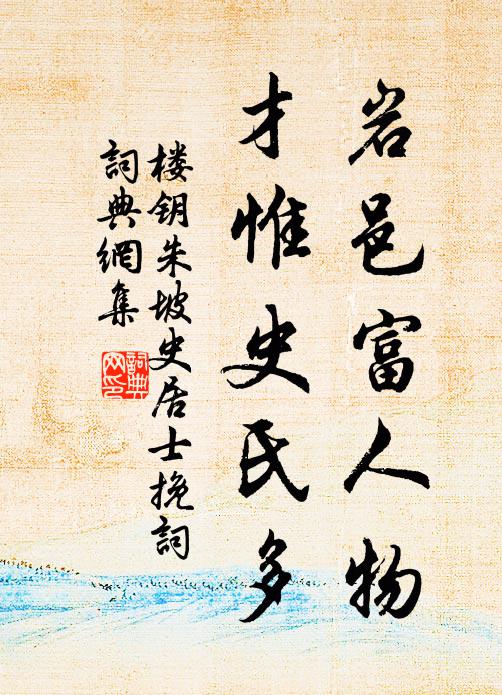 岩邑富人物
才惟史氏多
楼钥朱坡史居士挽詞
詞典網集
詞典
网印